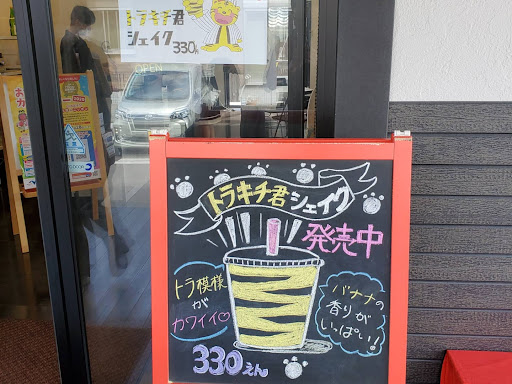 トラキチ君
シェイク 330えん
OPEN
トラキチ君シェイク
発売中
トラ模様
が
カワイイ♡
バナナの
香りが
いっぱい!
330えん